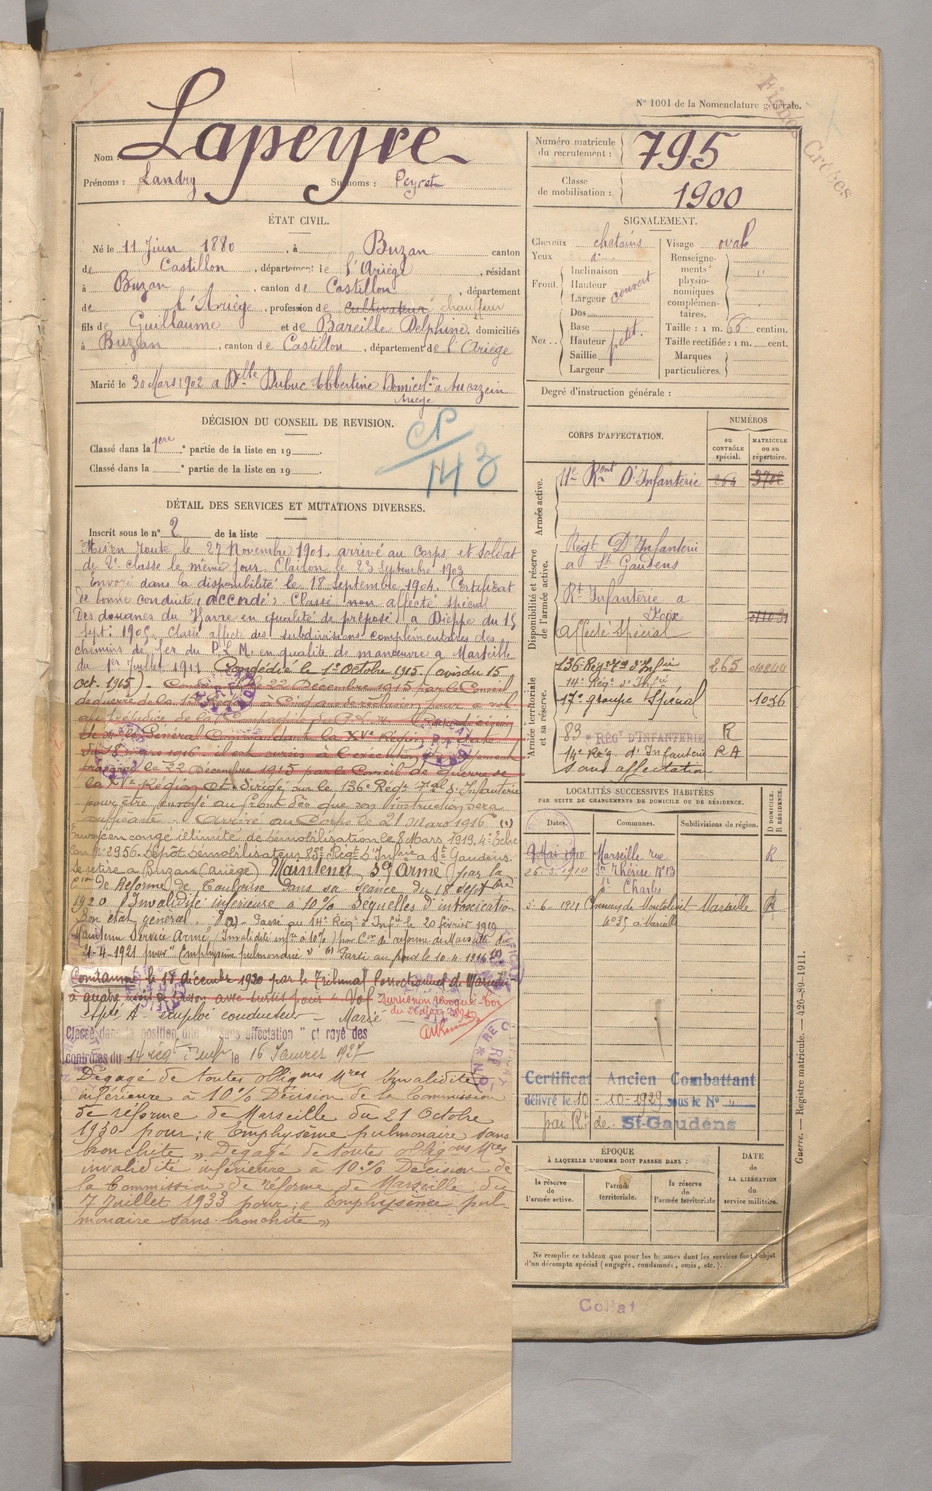 N° 1001 de la Nomenclature générale.
Fiches Créées
Nom Lapeyre
Prénoms : Landry Surnoms : Peyrot
Numéro matricule du recrutement : 795
Classe de mobilisation : 1900
ÉTAT CIVIL.
Né le 11 Juin 1880, à Buzan canton
de Castillon, département de l'Ariège, résidant
à Buzan, canton de Castillon, département
de l'Ariège, profession de cultivateur chauffeur
fils de Guillaume et de Bareille Delphine, domiciliés
à Buzan, canton de Castillon, département de l'Ariège
Marié le 30 Mars 1902 a Dlle Dubuc Albertine Domicilée à Aucazein
Ariège
SIGNALEMENT.
Cheveux chatains
Yeux d°
Front. Inclinaison
Hauteur
Largeur couvert
Nez. Dos
Base
Hauteur petit
Saillie
Largeur
Visage ovale
Renseignements physionomiques complémentaires.
Taille : 1 m. 66 centim.
Taille rectifiée : 1 m. cent.
Marques particulières.
Degré d'instruction générale :
DÉCISION DU CONSEIL DE REVISION.
Classé dans la 1ère partie de la liste en 19
Classé dans la e partie de la liste en 19
CP/143
DÉTAIL DES SERVICES ET MUTATIONS DIVERSES.
Inscrit sous le n° 2 de la liste
Mis en route le 27 Novembre 1901. arrivé au Corps et Soldat
de 2e classe le même jour. Clairon le 23 Septembre 1903
Envoyé dans la disponibilité le 18 Septembre 1904. Certificat
de bonne conduite "accordé". Classé non affecté spécial
Des douanes du Havre en qualité de préposé à Dieppe du 15
Sept. 1905. Classé affecté des subdivisions complémentaires des
chemins de fer du P.L.M. en qualité de manœuvre à Marseille
du 1er Juillet 1911. Congédié le 1er Octobre 1915 (avis du 15
Oct. 1915)
le 22 Décembre 1915 par le Conseil
de guerre de la
au préjudice de la Compagnie du P.L.M.
le Général Commandant la XVe Région
le 22 Décembre 1915 par le Conseil de Guerre de
la XVe Région et Dirigé sur le 136e Régt Tal d'Infanterie
pour être envoyé au front dès que son instruction sera
suffisante. Arrivé au Corps le 21 Mars 1916. (1)
Envoyé en congé illimité de démobilisation le 8 Mars 1919. 4e Echelon
N° 2956. Dépôt démobilisateur 83e Régt d'Infie à St Gaudens.
Se retire à Buzan (Ariège) Maintenu Sce Armé (par la
Cion de Réforme) de Toulouse Dans sa séance du 18 Septbre
1920 "Invalidité inférieure à 10% Séquelles d'intoxication
Bon état général." (2) Passé au 14e Régt d'Infie le 20 février 1919
Maintenu Service Armé (Invalidité infre à 10%) par Cion de réforme de Marseille du
4-4-1921 pour "Emphysème pulmonaire" (1) Parti au front le 10.4.1916
Condamné le 18 décembre 1920 par le Tribunal Correctionnel de Marseille
à quatre mois de prison avec sursis pour "Vol"
Classé dans la position dite "sans affectation" et rayé des
contrôles du 14 régt d'Infie le 16 Janvier 1927
Dégagé de toutes obligons Mres Invalidité
inférieure à 10% Décision de la Commission
de réforme de Marseille du 21 Octobre
1930 pour : "Emphysème pulmonaire sans
bronchite". Dégagé de toutes obligons Mres
invalidité inférieure à 10% Décision de
la Commission de réforme de Marseille du
7 Juillet 1933 pour : "Emphysème pul-
monaire sans bronchite"
CORPS D'AFFECTATION.
NUMÉROS
au contrôle spécial.
matricule ou au répertoire.
Armée active.
11e Rgnt D'Infanterie 264
Disponibilité et réserve de l'armée active.
Régt D'Infanterie
a St Gaudens
Rt Infanterie a
Foix
Affecté Spécial
Armée territoriale et sa réserve.
136 Régt Tal d'Infie 265
14e Régt d'Infie
17e groupe Spécial 1036
83e RÉGt D'INFANTERIE R
14e Rég. d'Infanterie RA
Sans affectation
LOCALITÉS SUCCESSIVES HABITÉES
PAR SUITE DE CHANGEMENTS DE DOMICILE OU DE RÉSIDENCE.
Dates. Communes. Subdivisions de région. D DOMICILE. R RÉSIDENCE.
9 Mai 1910 Marseille rue R
Ste Thérèse N°13
St Charles
5-6-1921 Marseille R
n° 35 à Marseille
Certificat Ancien Combattant
délivré le 10-10-1929 sous le N°
par Rt de St-Gaudens
ÉPOQUE
À LAQUELLE L'HOMME DOIT PASSER DANS :
la réserve de l'armée active.
l'armée territoriale.
la réserve de l'armée territoriale.
DATE de LA LIBÉRATION du service militaire.
Ne remplir ce tableau que pour les hommes dont les services font l'objet
d'un décompte spécial (engagés, condamnés, omis, etc.).
Collat
Guerre. — Registre matricule. — 426-89-1911.